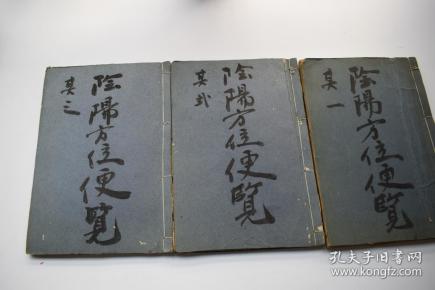 陰陽方位便覧
其一
陰陽方位便覧
其弐
陰陽方位便覧
其三
孔夫子旧书网
www.kongfz.com